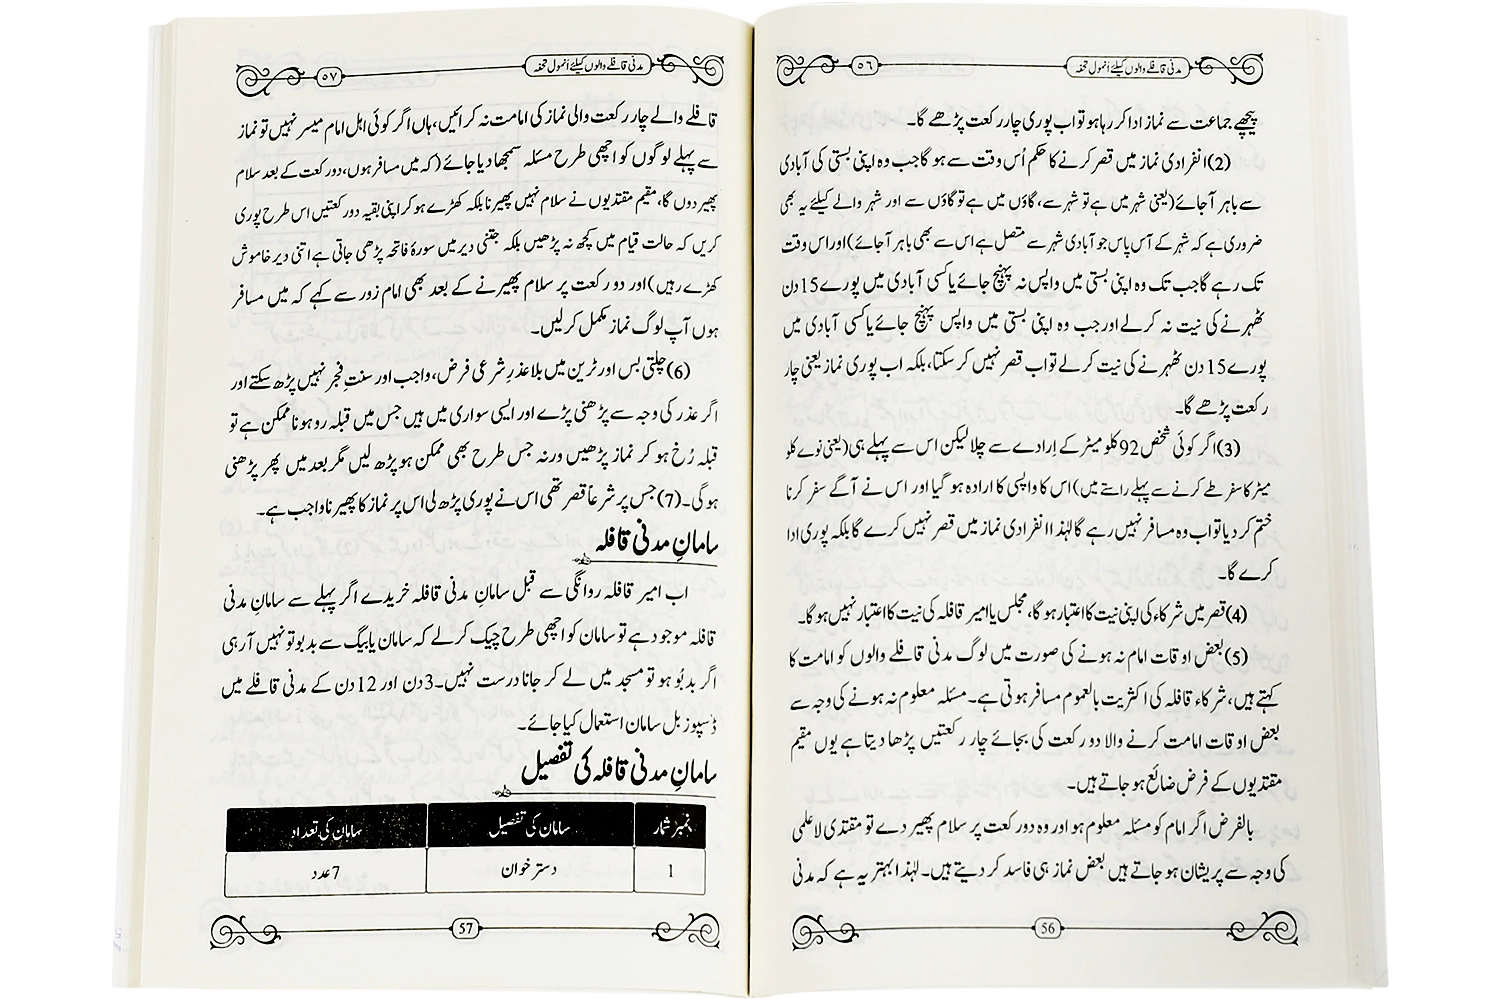 مدنی قافلے والوں کیلئے انمول تحفہ
٥٦
پیچھے جماعت سے نماز ادا کر رہا ہو تو اب پوری چار رکعت پڑھے گا۔
(2) انفرادی نماز میں قصر کرنے کا حکم اُس وقت سے ہو گا جب وہ اپنی بستی کی آبادی
سے باہر آ جائے (یعنی شہر میں ہے تو شہر سے، گاؤں میں ہے تو گاؤں سے اور شہر والے کیلئے یہ بھی
ضروری ہے کہ شہر کے آس پاس جو آبادی شہر سے متصل ہے اس سے بھی باہر آ جائے) اور اس وقت
تک رہے گا جب تک وہ اپنی بستی میں واپس نہ پہنچ جائے یا کسی آبادی میں پورے 15 دن
ٹھہرنے کی نیت نہ کر لے اور جب وہ اپنی بستی میں واپس پہنچ جائے یا کسی آبادی میں
پورے 15 دن ٹھہرنے کی نیت کر لے تو اب قصر نہیں کر سکتا، بلکہ اب پوری نماز یعنی چار
رکعت پڑھے گا۔
(3) اگر کوئی شخص 92 کلو میٹر کے اِرادے سے چلا لیکن اس سے پہلے ہی (یعنی نوے کلو
میٹر کا سفر طے کرنے سے پہلے راستے میں) اس کا واپسی کا ارادہ ہو گیا اور اس نے آگے سفر کرنا
ختم کر دیا تو اب وہ مسافر نہیں رہے گا لہٰذا انفرادی نماز میں قصر نہیں کرے گا بلکہ پوری ادا
کرے گا۔
(4) قصر میں شرکاء کی اپنی نیت کا اعتبار ہو گا، مجلس یا امیر قافلہ کی نیت کا اعتبار نہیں ہو گا۔
(5) بعض اوقات امام نہ ہونے کی صورت میں لوگ مدنی قافلے والوں کو امامت کا
کہتے ہیں، شرکاء قافلہ کی اکثریت بالعموم مسافر ہوتی ہے۔ مسئلہ معلوم نہ ہونے کی وجہ سے
بعض اوقات امامت کرنے والا دو رکعت کی بجائے چار رکعتیں پڑھا دیتا ہے یوں مقیم
مقتدیوں کے فرض ضائع ہو جاتے ہیں۔
بالفرض اگر امام کو مسئلہ معلوم ہو اور وہ دو رکعت پر سلام پھیر دے تو مقتدی لاعلمی
کی وجہ سے پریشان ہو جاتے ہیں بعض نماز ہی فاسد کر دیتے ہیں۔ لہٰذا بہتر یہ ہے کہ مدنی
56
مدنی قافلے والوں کیلئے انمول تحفہ
٥٧
قافلے والے چار رکعت والی نماز کی امامت نہ کرائیں، ہاں اگر کوئی اہل امام میسر نہیں تو نماز
سے پہلے لوگوں کو اچھی طرح مسئلہ سمجھا دیا جائے (کہ میں مسافر ہوں، دو رکعت کے بعد سلام
پھیر دوں گا، مقیم مقتدیوں نے سلام نہیں پھیرنا بلکہ کھڑے ہو کر اپنی بقیہ دو رکعتیں اس طرح پوری
کریں کہ حالت قیام میں کچھ نہ پڑھیں بلکہ جتنی دیر میں سورۂ فاتحہ پڑھی جاتی ہے اتنی دیر خاموش
کھڑے رہیں) اور دو رکعت پر سلام پھیرنے کے بعد بھی امام زور سے کہے کہ میں مسافر
ہوں آپ لوگ نماز مکمل کر لیں۔
(6) چلتی بس اور ٹرین میں بلا عذرِ شرعی فرض، واجب اور سنتِ فجر نہیں پڑھ سکتے اور
اگر عذر کی وجہ سے پڑھنی پڑے اور ایسی سواری میں ہیں جس میں قبلہ رو ہونا ممکن ہے تو
قبلہ رُخ ہو کر نماز پڑھیں ورنہ جس طرح بھی ممکن ہو پڑھ لیں مگر بعد میں پھر پڑھنی
ہو گی۔ (7) جس پر شرعاً قصر تھی اس نے پوری پڑھ لی اس پر نماز کا پھیرنا واجب ہے۔
سامانِ مدنی قافلہ
اب امیر قافلہ روانگی سے قبل سامانِ مدنی قافلہ خریدے اگر پہلے سے سامانِ مدنی
قافلہ موجود ہے تو سامان کو اچھی طرح چیک کر لے کہ سامان یا بیگ سے بدبو تو نہیں آرہی
اگر بدبُو ہو تو مسجد میں لے کر جانا درست نہیں۔ 3 دن اور 12 دن کے مدنی قافلے میں
ڈسپوزبل سامان استعمال کیا جائے۔
سامانِ مدنی قافلہ کی تفصیل
نمبر شمار سامان کی تفصیل سامان کی تعداد
1 دستر خوان 7 عدد
57